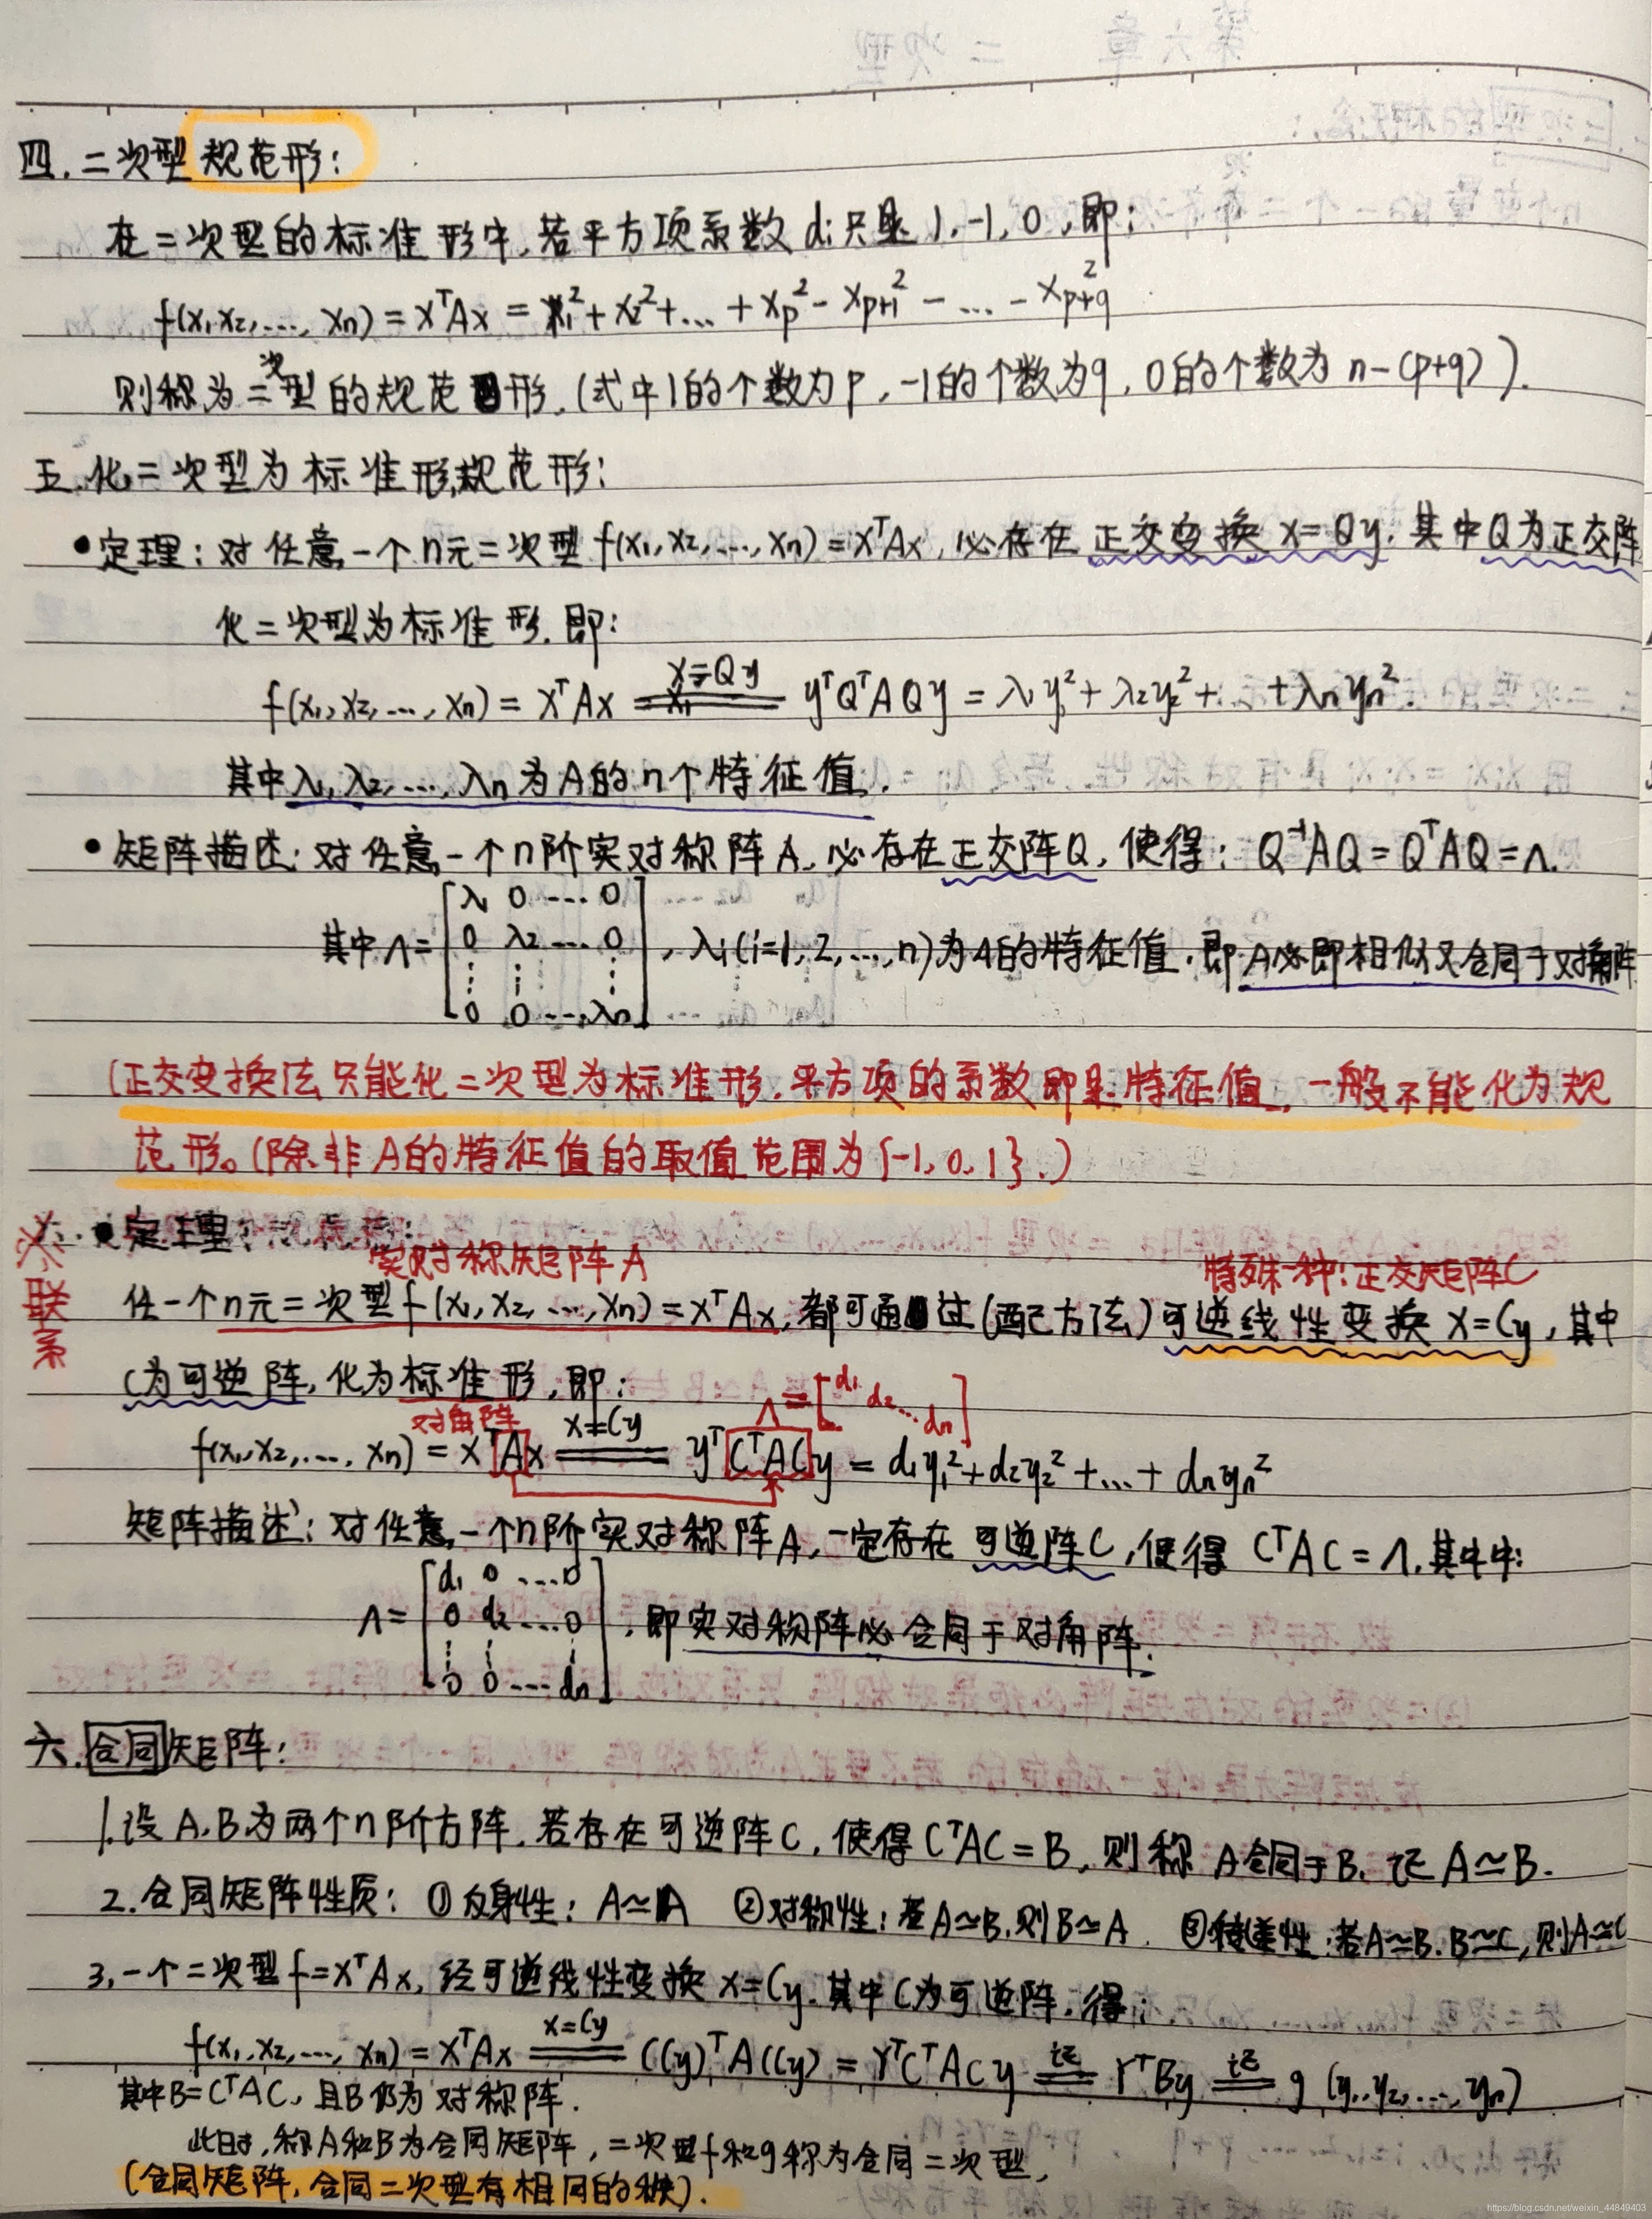 四.二次型规范形:
在二次型的标准形中,若平方项系数di只是1,-1,0,即:
f(x₁,x₂,…,xn)=xᵀAx=x₁²+x₂²+…+xp²-xp+1²-…-xp+q²
则称为二次型的规范形.(式中1的个数为p,-1的个数为q,0的个数为n-(p+q)).
五.化二次型为标准形,规范形:
•定理:对任意一个n元二次型f(x₁,x₂,…,xn)=xᵀAx,必存在正交变换x=Qy.其中Q为正交阵
化二次型为标准形.即:
f(x₁,x₂,…,xn)=xᵀAx x=Qy yᵀQᵀAQy=λ₁y₁²+λ₂y₂²+ +λnyn².
其中λ₁,λ₂,…,λn为A的n个特征值.
•矩阵描述:对任意一个n阶实对称阵A,必存在正交阵Q,使得:Q⁻¹AQ=QᵀAQ=Λ.
其中Λ=[λ₁ 0 … 0
0 λ₂ … 0
⋮ ⋮ ⋮
0 0 … λn],λi(i=1,2,…,n)为A的特征值.即A必即相似又合同于对角阵
(正交变换法只能化二次型为标准形.平方项的系数即是特征值.一般不能化为规
范形。(除非A的特征值的取值范围为{-1,0,1}.)
•定理:
实对称矩阵A 特殊一种:正交矩阵C
联系
任一个n元二次型f(x₁,x₂,…,xn)=xᵀAx,都可通过(配方法)可逆线性变换x=Cy,其中
C为可逆阵,化为标准形,即:
对角阵 Λ=[d₁ d₂…dn]
f(x₁,x₂,…,xn)=xᵀAx x=Cy yᵀCᵀACy=d₁y₁²+d₂y₂²+…+dnyn²
矩阵描述:对任意一个n阶实对称阵A,一定存在可逆阵C,使得CᵀAC=Λ.其中中:
Λ=[d₁ 0 … 0
0 d₂ … 0
⋮ ⋮ ⋮
0 0 … dn],即实对称阵必合同于对角阵.
六.合同矩阵:
1.设A.B为两个n阶方阵.若存在可逆阵C,使得CᵀAC=B,则称A合同于B.记A≃B.
2.合同矩阵性质:①反射性:A≃A ②对称性:若A≃B.则B≃A. ③传递性:若A≃B.B≃C,则A≃C
3.一个二次型f=xᵀAx,经可逆线性变换x=Cy.其中C为可逆阵.得:
f(x₁,x₂,…,xn)=xᵀAx x=Cy (Cy)ᵀA(Cy)=YᵀCᵀACy 记 YᵀBy 记 g(y₁,y₂,…,yn)
其中B=CᵀAC,且B仍为对称阵.
此时,称A和B为合同矩阵,二次型f和g称为合同二次型,
(合同矩阵,合同二次型有相同的秩).
https://blog.csdn.net/weixin_44849403